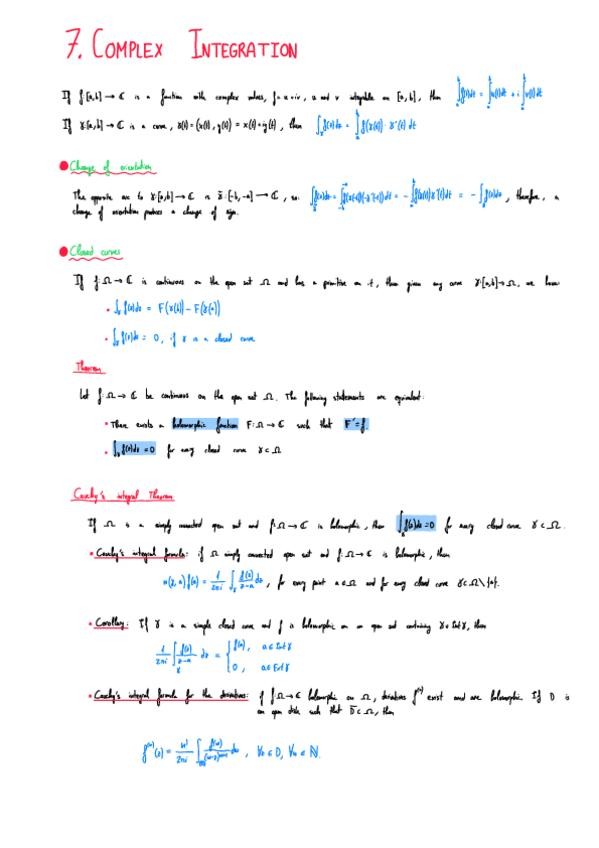 7. COMPLEX INTEGRATION
If f:[a,b] → ℂ is a function with complex values, f = u+iv, u and v integrable on [a,b], then ∫_a^b f(t)dt = ∫_a^b u(t)dt + i ∫_a^b v(t)dt
If γ:[a,b] → ℂ is a curve, γ(t) = (x(t), y(t)) = x(t) + iy(t), then ∫_γ f(z)dz = ∫_a^b f(γ(t))·γ'(t) dt
Change of orientation
The opposite arc to γ:[a,b] → ℂ is γ̃:[-b,-a] → ℂ, so: = -∫_γ f(z)dz, therefore, a
change of orientation produces a change of sign.
Closed curves
If f:Ω → ℂ is continuous on the open set Ω and has a primitive on it, then given any curve γ:[a,b] → Ω, we have
• ∫_γ f(z)dz = F(γ(b)) - F(γ(a))
• ∫_γ f(z)dz = 0, if γ is a closed curve
Theorem
Let f:Ω → ℂ be continuous on the open set Ω. The following statements are equivalent:
• There exists a holomorphic function F:Ω → ℂ such that F' = f.
• ∫_γ f(z)dz = 0 for every closed curve γ ⊂ Ω
Cauchy's integral Theorem
If Ω is a simply connected open set and f:Ω → ℂ is holomorphic, then ∫_γ f(z)dz = 0 for every closed curve γ ⊂ Ω.
• Cauchy's integral formula: if Ω simply connected open set and f:Ω → ℂ is holomorphic, then
n(γ,a) f(a) = 1/2πi ∫_γ f(z)/(z-a) dz, for every point a ∈ Ω and for every closed curve γ ⊂ Ω\{a}.
• Corollary: If γ is a simple closed curve and f is holomorphic on an open set containing γ ∪ Int γ, then
1/2πi ∫_γ f(z)/(z-a) dz = { f(a), a ∈ Int γ
0, a ∈ Ext γ
• Cauchy's integral formula for the derivatives: if f:Ω → ℂ holomorphic on Ω, derivatives f⁽ⁿ⁾ exist and are holomorphic. If D is
an open disk such that D̄ ⊂ Ω, then
f⁽ⁿ⁾(z) = n!/2πi ∫_∂D f(w)/(w-z)ⁿ⁺¹ dw, ∀z ∈ D, ∀n ∈ ℕ.